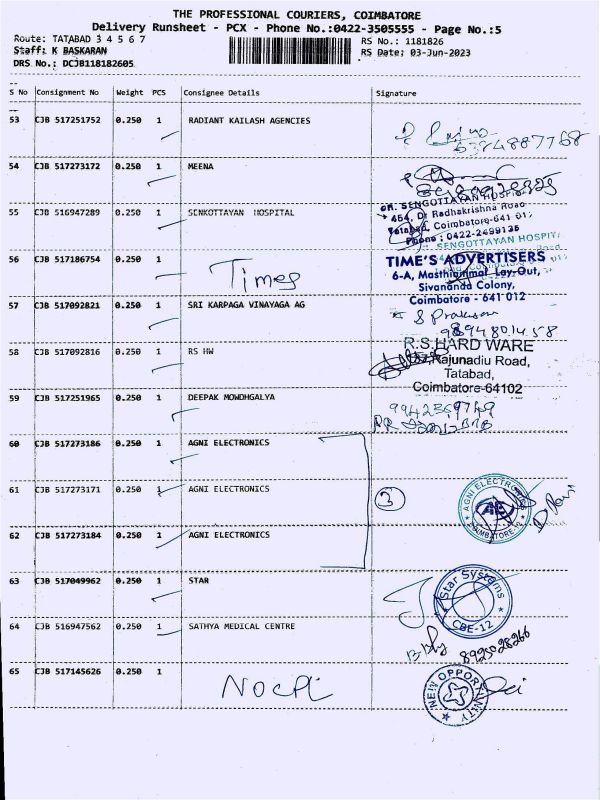 THE PROFESSIONAL COURIERS, COIMBATORE
Delivery Runsheet - PCX - Phone No.:0422-3505555 - Page No.:5
Route: TATABAD 3 4 5 6 7
RS No.: 1181826
Staff: K BASKARAN
RS Date: 03-Jun-2023
DRS No.: DCJB118182605
S No Consignment No Weight PCS Consignee Details Signature
53 CJB 517251752 0.250 1 RADIANT KAILASH AGENCIES
54 CJB 517273172 0.250 1 MEENA
55 CJB 516947289 0.250 1 SENKOTTAYAN HOSPITAL
SENGOTTAYAN HOSPI
454, Dr Radhakrishna Road
Tatabad, Coimbatore-641 012
Phone : 0422-2499135
SENGOTTAYAN HOSPIT
56 CJB 517186754 0.250 1 Times
TIME'S ADVERTISERS
6-A, Masthiammal Lay-Out,
Sivananda Colony,
Coimbatore - 641 012
57 CJB 517092821 0.250 1 SRI KARPAGA VINAYAGA AG
9894801458
58 CJB 517092816 0.250 1 RS HW
R.S.HARD WARE
Rajunadiu Road,
Tatabad,
Coimbatore-64102
59 CJB 517251965 0.250 1 DEEPAK MOWDHGALYA
60 CJB 517273186 0.250 1 AGNI ELECTRONICS
61 CJB 517273171 0.250 1 AGNI ELECTRONICS
3
AGNI ELECTRONICS
AE
COIMBATORE-12
62 CJB 517273184 0.250 1 AGNI ELECTRONICS
63 CJB 517049962 0.250 1 STAR
Star Systems
CBE-12
64 CJB 516947562 0.250 1 SATHYA MEDICAL CENTRE
8925028266
65 CJB 517145626 0.250 1
NEW OPPORTUNITY